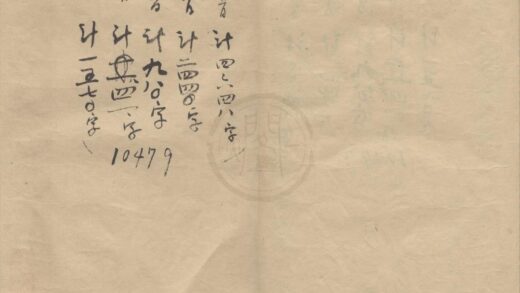 計四六四八字
計二四四〇字
計九八〇字
計八四一字
計一五七〇字
10479